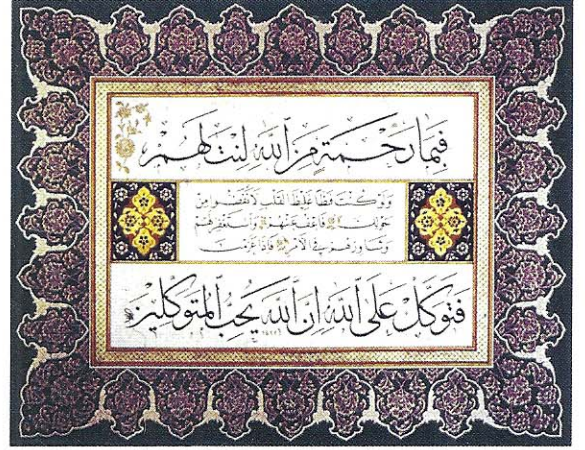 فَبِمَا رَحْمَةٍ مِنَ اللّٰهِ لِنْتَ لَهُمْ
وَلَوْ كُنْتَ فَظًّا غَلِيظَ الْقَلْبِ لَانْفَضُّوا مِنْ
حَوْلِكَ فَاعْفُ عَنْهُمْ وَاسْتَغْفِرْ لَهُمْ
وَشَاوِرْهُمْ فِي الْأَمْرِ فَإِذَا عَزَمْتَ
فَتَوَكَّلْ عَلَى اللّٰهِ اِنَّ اللّٰهَ يُحِبُّ الْمُتَوَكِّلِينَ